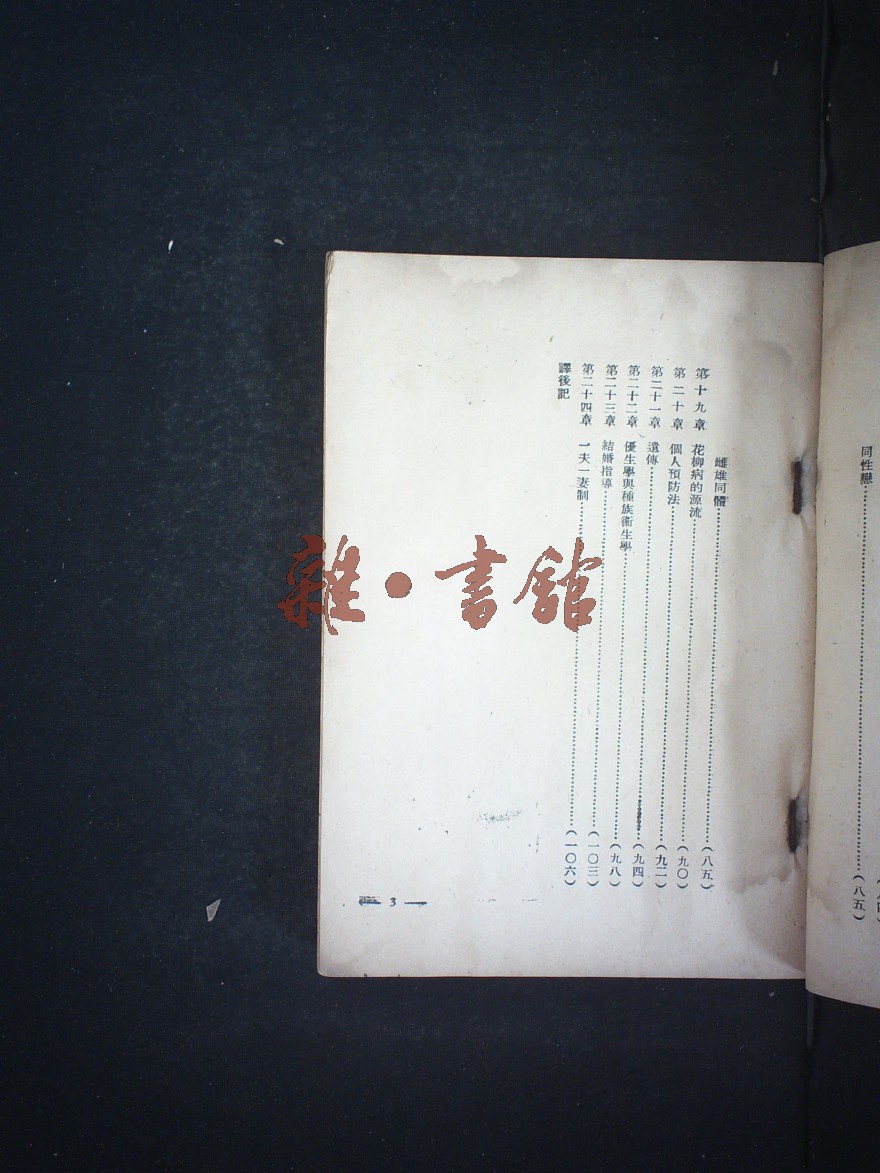 同性戀……………………(八五)
雌雄同體……………………(八五)
第十九章 花柳病的源流……………………(九〇)
第二十章 個人預防法……………………(九二)
第二十一章 遺傳……………………(九四)
第二十二章 優生學與種族衞生學……………………(九八)
第二十三章 結婚指導……………………(一〇三)
第二十四章 一夫一妻制……………………(一〇六)
譯後記
— 3 —
雜·書館